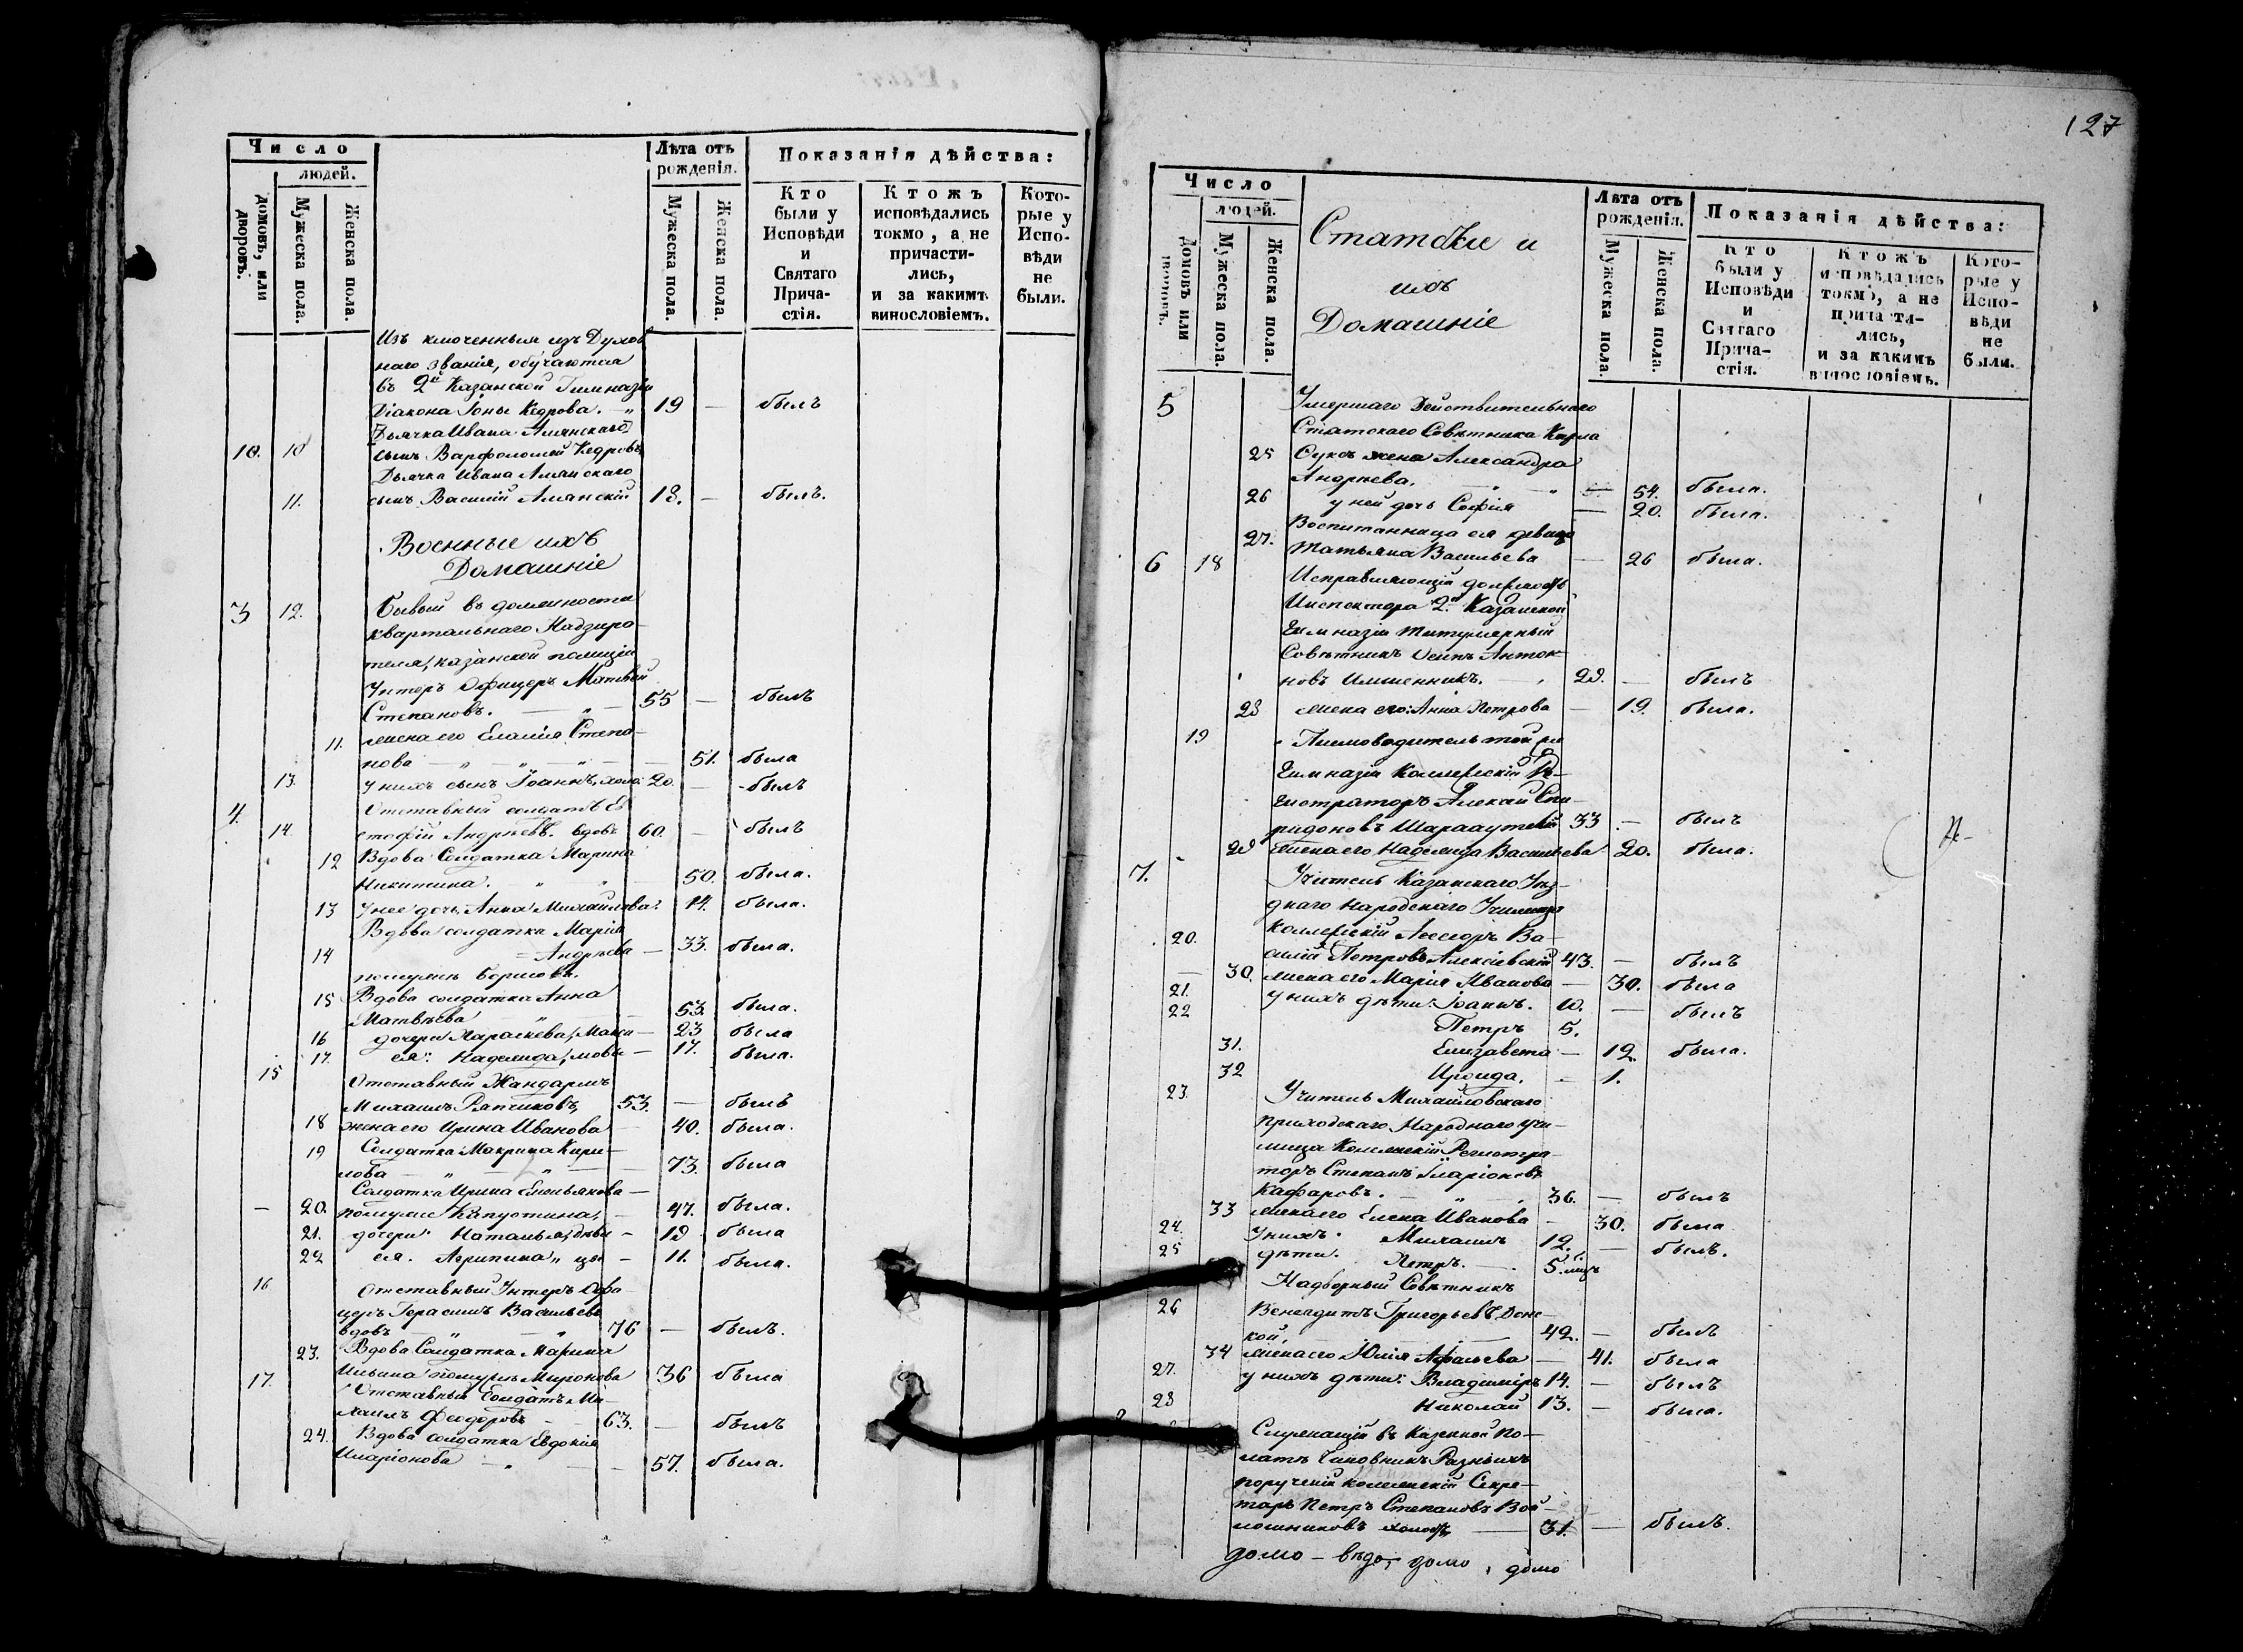 Число
людей.
домовъ, или дворовъ.
Мужеска пола.
Женска пола.
Лѣта отъ рожденія.
Мужеска пола.
Женска пола.
Показанія дѣйства:
Кто были у Исповѣди и Святаго Прича-стія.
Ктожъ исповѣдались токмо, а не причасти-лись, и за какимъ винословіемъ.
Кото-рые у Испо-вѣди не были.
Изъ ключенныя изъ Духов
наго званія, обучаются
въ 2й Казанской Гимназіи
Діакона Іоны Кедрова. 19 — былъ
Дьячка Ивана Алянскаго
10. 10 сынъ Варфоломей Кедровъ
Дьячка Ивана Алянскаго
11. сынъ Василій Алянскій 18. — былъ.
Военные ихъ
Домашніе
3 12. Бывый въ должности
квартальнаго Надзира-
теля, казанской полиціи
Унтеръ Офицеръ Матвѣй
Степановъ. 55 — былъ
11. жена его Степа-
нова — 51. была
13. у нихъ сынъ Іоаннъ, холо: 20. — былъ
4. Отставный солдатъ Ев
14. стафій Андреевъ. вдовъ 60. — былъ
12 Вдова Солдатка Марина
Никитина. 50. была.
13 у нее дочь Анна Михайлова: 14. была.
Вдова солдатка Марія
14 Андреева — 33. была.
Борисовъ.
15 Вдова солдатка Анна
Матвѣева 53. была.
16 дочери Параскева, 23 была
17. ея: Надежда, 17. была.
15 Отставный Жандармъ
Михаилъ 53. — былъ
18 жена его Ирина Иванова 40. была.
19 Солдатка Макрина Кири-
лова 73. была
Солдатка Ирина Емельянова —
20. Капустина, 47. была.
21. дочери Наталья, 19 была
22 ея. Агрипина 11. была.
16 Отставный Унтеръ Офи-
церъ Герасимъ Васильевъ
вдовъ 76 — былъ.
23. Вдова Солдатка Марина
Ильина Миронова 36 была
17. Отставный Солдатъ Ми-
хаилъ Феодоровъ 63. — былъ
24. Вдова солдатка Евдокія
Иларіонова 57. была.
127
Число
людей.
Домовъ или дворовъ.
Мужеска пола.
Женска пола.
Статскіе и
ихъ
Домашніе
Лѣта отъ рожденія.
Мужеска пола.
Женска пола.
Показанія дѣйства:
Кто были у Исповѣди и Святаго Прича-стія.
Ктожъ исповѣдались токмо, а не причасти-лись, и за какимъ винословіемъ.
Кото-рые у Испо-вѣди не были.
5 Умершаго Действительнаго
Статскаго Совѣтника Карла
25 жена Александра
Андреева. — 54. была.
26 у ней дочь Софія — 20. была.
Воспитанница ея девица
27. Татьяна Васильева — 26 была.
6 18 Исправляющій должность
Инспектора 2й Казанской
Гимназіи Титулярный
Совѣтникъ Осипъ Анто-
новъ 29. — былъ
28 жена его: Анна Петрова — 19. была.
19 Писмоводитель той же
Гимназіи Коллежскій Ре-
гистраторъ Алексей Спи-
ридоновъ 33 — былъ
29 жена его Надежда Васильева 20. была.
7. Учитель Казанскаго Уѣз-
днаго Народскаго Училища
20. Коллежскій Асессоръ Ва-
силій Петровъ Алексіевскій 43. — былъ
30. жена его Марія Иванова — 30. была
21. у нихъ дѣти: Іоаннъ. 10. — былъ
22 Петръ 5.
31. Елизавета — 12. была.
32 Ираида. — 1.
23. Учитель Михайловскаго
приходскаго Народнаго Учи-
лища Коллежскій Регистра-
торъ Степанъ Иларіоновъ
Кафаровъ. 36. — былъ
33 жена его Елена Иванова — 30. была
24. у нихъ Михаилъ 12. — былъ.
25 дѣти. Петръ. 5.
Надворный Совѣтникъ
26 Венедиктъ Григорьевъ Донс-
кой. 42. — былъ
34 жена его Юлія — 41. была
27. у нихъ дѣти: Владиміръ 14. — былъ
28 Николай 13. — была.
Служащій въ Казенной По-
латѣ Чиновникъ Разныхъ
порученій коллежскій Секре-
тарь Петръ Степановъ Вой-
лошниковъ холостъ 31. — былъ.
домо — домо, домо